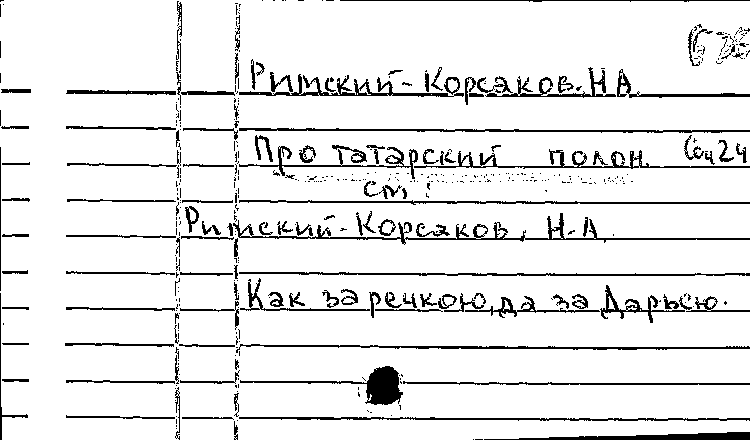 Римский-Корсаков. Н А
Про татарский полон. Соч 24
см:
Римский-Корсаков, Н.А.
Как за речкою, да за Дарьею.